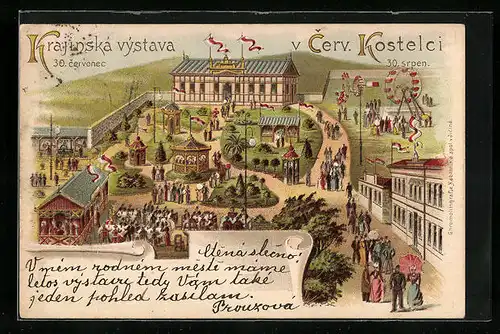 Krajinská výstava v Červ. Kostelci
30. červenec 30. srpen.
Ctěná slečno!
V mém rodném městě máme
letos výstavu, tedy Vám také
jeden pohled zasílám.
Prouzova